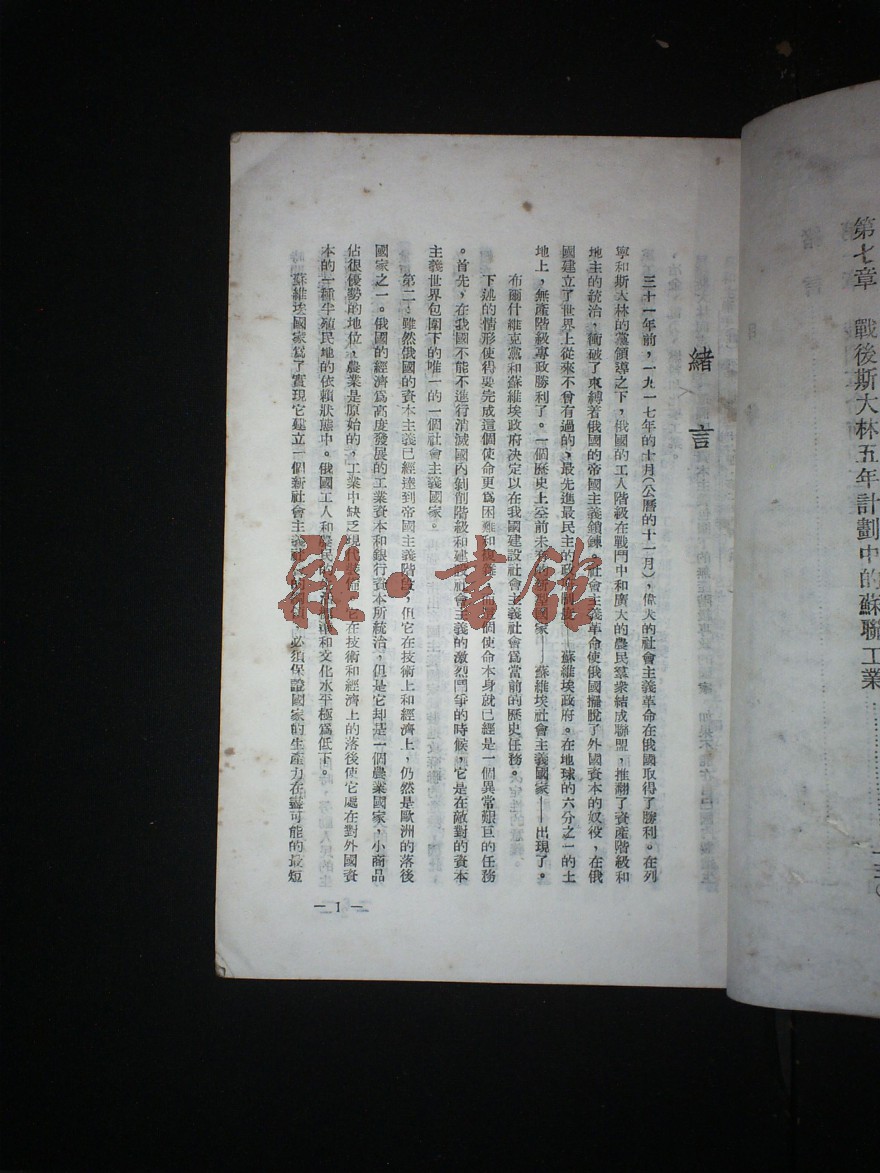 第七章　戰後斯大林五年計劃中的蘇聯工業
緒言
三十一年前，一九一七年的十月(公曆的十一月)，偉大的社會主義革命在俄國取得了勝利。在列
寧和斯大林的黨領導之下，俄國的工人階級在戰鬥中和廣大的農民羣衆結成聯盟，推翻了資產階級和
地主的統治，衝破了束縛着俄國的帝國主義鎖鍊。社會主義革命使俄國擺脫了外國資本的奴役，在俄
國建立了世界上從來不曾有過的、最先進最民主的政府——蘇維埃政府。在地球的六分之一的土
地上，無產階級專政勝利了。一個歷史上空前未有的國家——蘇維埃社會主義國家——出現了。
布爾什維克黨和蘇維埃政府决定以在我國建設社會主義社會爲當前的歷史任務。
下述的情形使得要完成這個使命更爲困難和複雜，而這個使命本身就已經是一個異常艱巨的任務
。首先，在我國不能不進行消滅國內剝削階級和建設社會主義的激烈鬥爭的時候，它是在敵對的資本
主義世界包圍下的唯一的一個社會主義國家。
第二，雖然俄國的資本主義已經達到帝國主義階段，但它在技術上和經濟上，仍然是歐洲的落後
國家之一。俄國的經濟爲高度發展的工業資本和銀行資本所統治，但是它却是一個農業國家，小商品
佔很優勢的地位，農業是原始的，工業中缺乏現代裝備，它在技術和經濟上的落後使它處在對外國資
本的一種半殖民地的依賴狀態中。俄國工人和農民的和文化水平極爲低下。
蘇維埃國家爲了實現它建立一個新社會主義社會的，必須保證國家的生產力在盡可能的最短
— 1 —
雜·書館